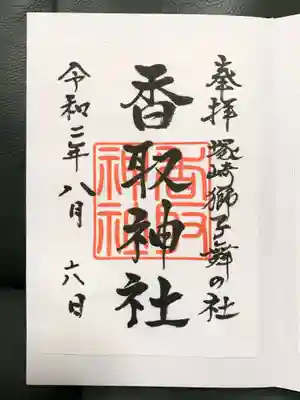 奉拝 塚崎獅子舞の社
香取神社
香取神社
令和二年八月六日